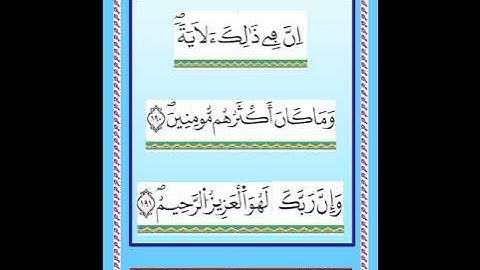 اِنَّ فِے ذَٰلِكَ ءَلَايَةٗۖ
وَمَا كَانَ أَكْثَرُهُم مُّومِنِينَۖ ١٩٠
وَإِنَّ رَبَّكَ لَهُوَ اَ۬لْعَزِيزُ اُ۬لرَّحِيمُۖ ١٩١